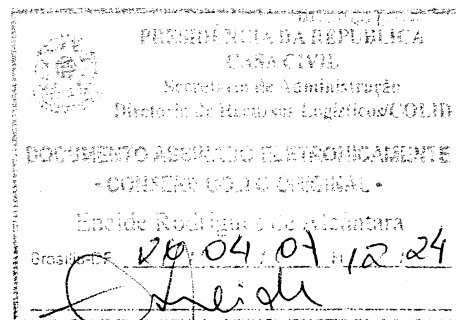 PRESIDÊNCIA DA REPÚBLICA
CASA CIVIL
Secretaria de Administração
Diretoria de Recursos Logísticos/COLID
DOCUMENTO ASSINADO ELETRONICAMENTE
- CONFERE COM O ORIGINAL -
Eneide Rodrigues de Alcântara
Brasília-DF 04 07 12 24
Eneide